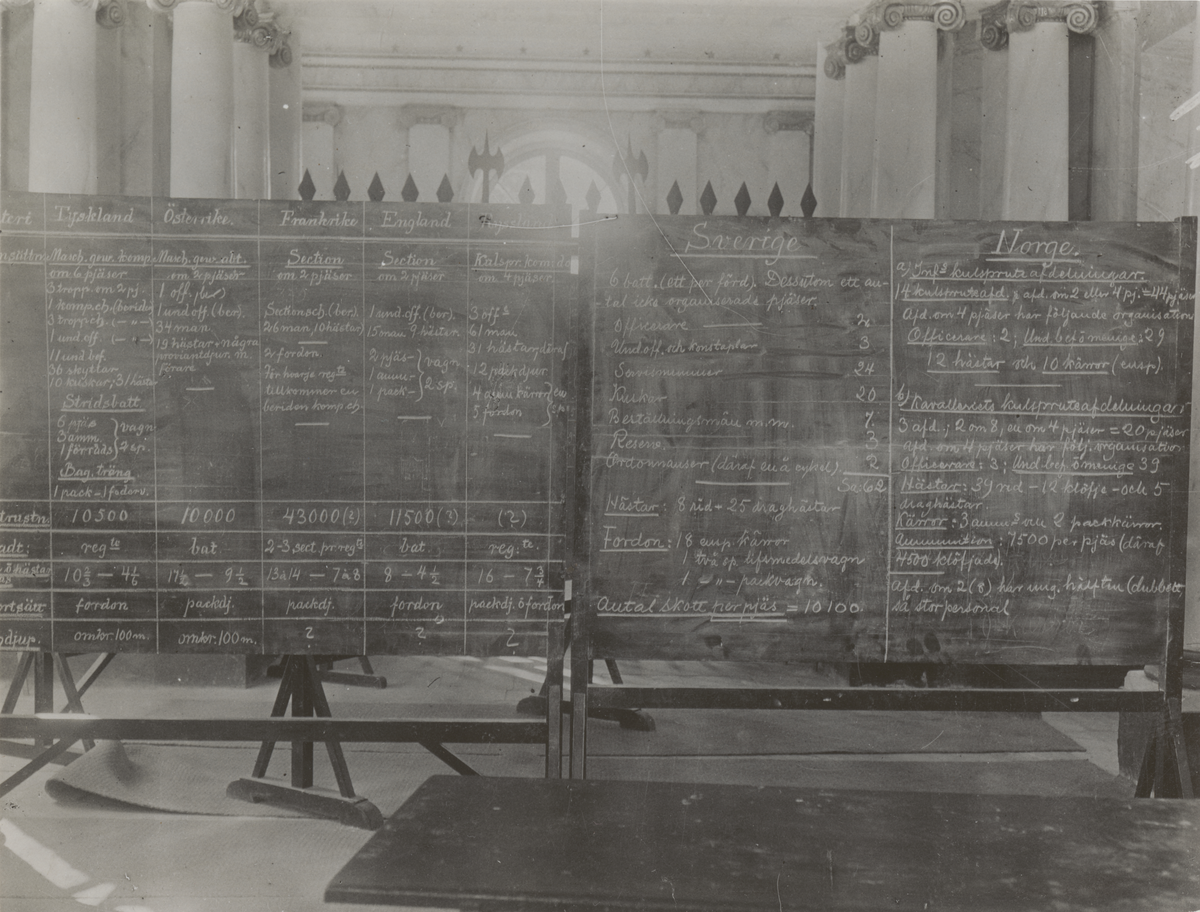 Tyskland
Masch. gew. komp.
om 6 pjäser
3 tropp. om 2 pj.
1 komp.ch. (beriden)
3 troppch. ( - „ - )
1 und.off. ( - „ - )
11 und bef.
36 skyttar
10 kuskar; 31 hästar
Stridsbatt
6 pjäs
3 amm.
1 förråds
vagn
4 sp.
Bag. träng
1 pack - 1 foderv.
10500
reg.te
10 2/3 — 4 1/6
fordon
omkr. 100 m.
Österrike.
Masch. gew. abt.
om 2 pjäser
1 off.
1 und.off. (ber).
34 man
19 hästar + några
proviantdjur m.
förare
10000
bat.
17 1/2 — 9 1/2
packdj.
omkr. 100 m.
Frankrike
Section
om 2 pjäser
Sectionsch (ber).
26 man, 10 hästar
2 fordon.
För hvarje reg.te
tillkommer en
beriden komp.ch
43000 (?)
2-3 sect. pr reg.te
13 à 14 — 7 à 8
packdj.
?
England
Section
om 2 pjäser
1 und.off. (ber).
15 man 9 hästar.
2 pjäs-
1 amm-
1 pack-
vagn
2 sp.
11500 (?)
bat.
8 — 4 1/2
fordon
?
Kulspr. komdo
om 4 pjäser.
3 off.s
61 man
31 hästar, däraf
12 packdjur
4 amm kärror
5 fordon
en
sp.
(?)
reg.te.
16 — 7 3/4
packdj. ö fordon
?
Sverige
6 batt. (ett per förd). Dessutom ett an-
- tal icke organiserade pjäser.
Officerare 2
Und.off. och konstaplar 3
Servisnummer 24
Kuskar 20
Bertäckningsmän m.m. 7.
Reserv. 3
Ordonnanser (däraf en å cykel). 2
Sa: 62
Hästar: 8 rid + 25 draghästar
Fordon: 18 ensp. kärror
1 två sp. lifsmedelsvagn
1 - „ - packvagn.
Antal skott per pjäs = 10100.
Norge.
a) Inf.s kulspruteafdelningar.
14 kulspruteafd. à afd. om 2 eller 4 pj. = 44 pjäser
Afd. om 4 pjäser har följande organisation
Officerare: 2; Und bef ö menige: 29
12 hästar och 10 kärror (ensp).
b) Kavalleriets kulspruteafdelningar
3 afd.; 2 om 8, en om 4 pjäser = 20 pjäser
afd. om 4 pjäser har följ. organisation
Officerare: 3; Und bef. ö menige 39
Hästar: 39 rid - 12 klöfje - och 5
draghästar.
Kärror: 3 amm.s och 2 packkärror.
Ammunition: 7500 per pjäs (däraf
4500 klöfjads).
Afd. om 2 (8) har ung. hälften (dubbelt
så stor personal